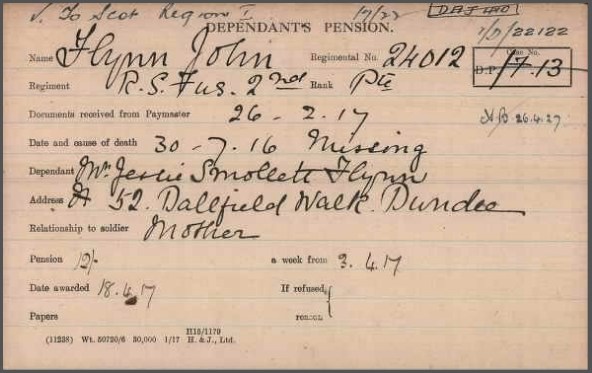 To Scot Region I 17/22
DEPENDANT'S PENSION. 1/D/22122
Name Flynn John Regimental No. 24012 Case No.
Regiment R. S. Fus. 2nd Rank Pte D.P. 17.13
Documents received from Paymaster 26 - 2. 17 26.4.27
Date and cause of death 30 - 7. 16 Missing
Dependant Mrs Jessie Smollett Flynn
Address 52. Dallfield Walk. Dundee
Relationship to soldier Mother
Pension 12/- a week from 3. 4. 17
Date awarded 18.4.17 If refused,
Papers reason
H15/1179
(11238) Wt. 50720/6 30,000 1/17 H. & J., Ltd.